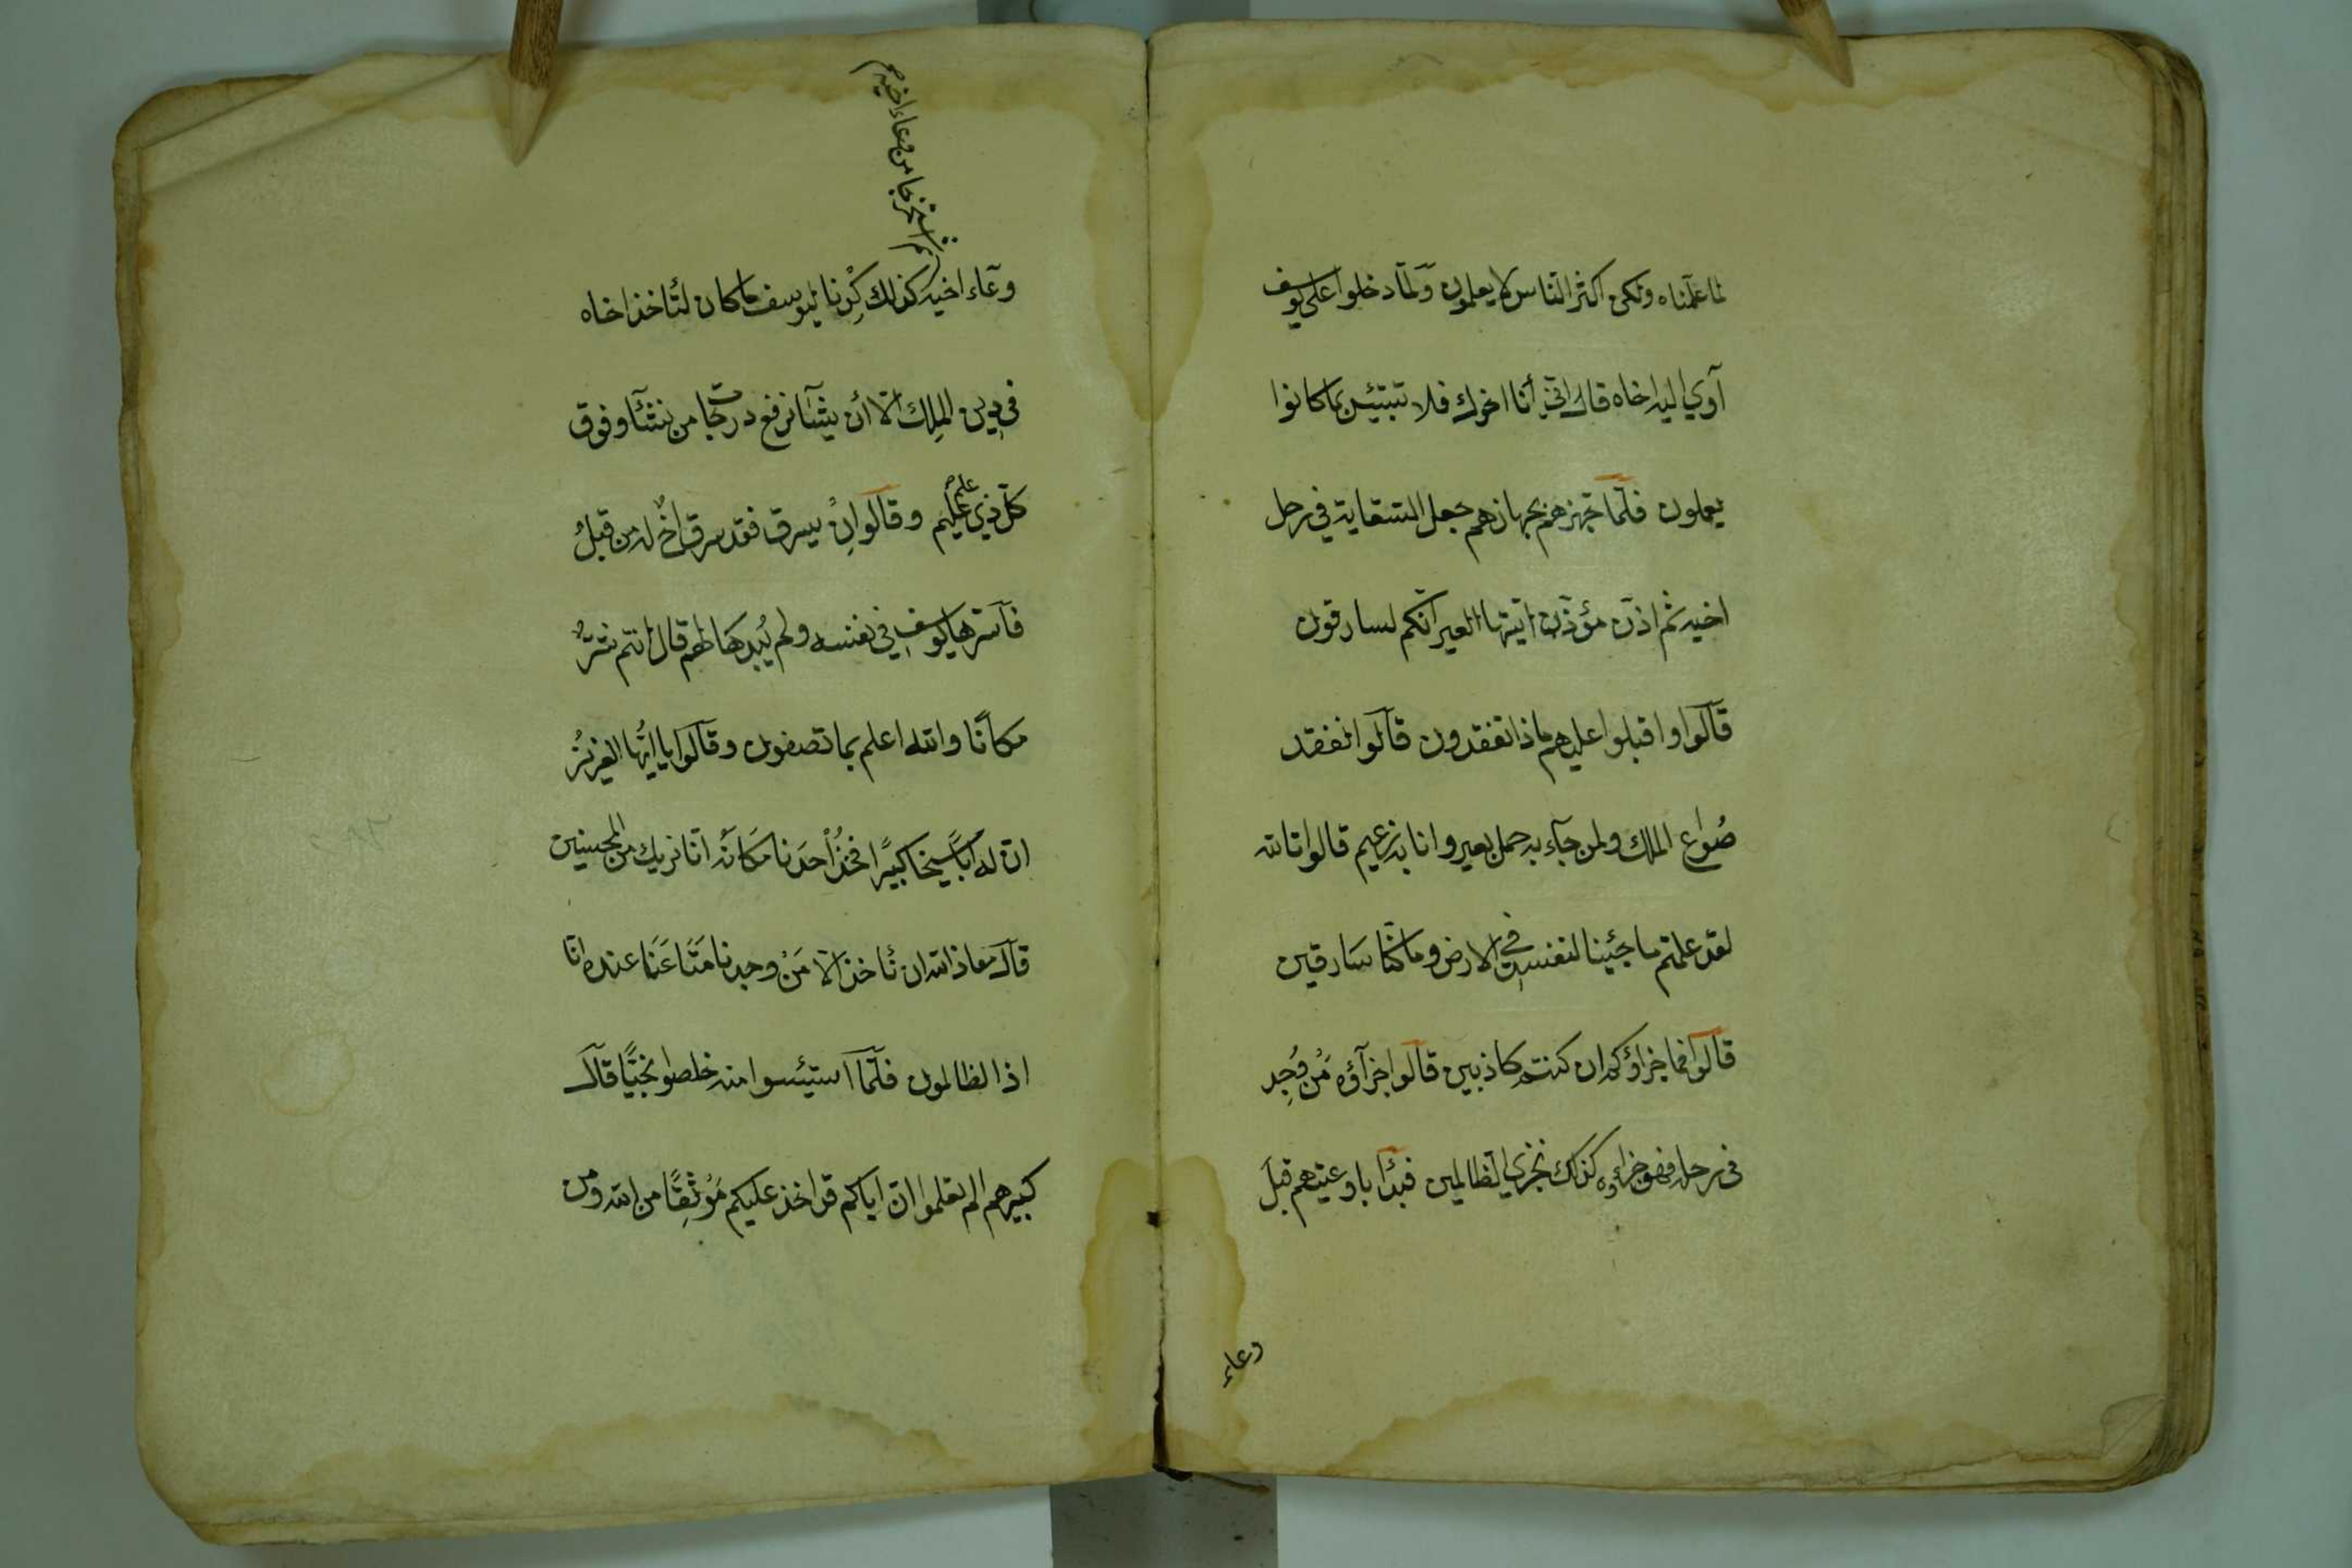 لما علمناه ولكن اكثر الناس لا يعلمون ولما دخلوا على يوسف
آوي اليه اخاه قال اني أنا اخوك فلا تبتئس بما كانوا
يعملون فلما جهزهم بجهازهم جعل السقاية في رحل
اخيه ثم اذن مؤذن ايتها العير انكم لسارقون
قالوا واقبلوا عليهم ماذا تفقدون قالوا نفقد
صُواع الملك ولمن جآء به حمل بعير وانا به زعيم قالوا تالله
لقد علمتم ما جئينا لنفسد في الارض وما كنا سَارقين
قالوا فما جزاؤكم ان كنتم كاذبين قالوا جزآؤه مَنْ وُجِد
في رحله فهو جزاءوه كذلك نجزي الظالمين فبدأ باوعيتهم قبلَ
وعاء
وعآء اخيه كذلك كِدْنا ليوسف ما كان لئاخذ اخاه
ثم استخرجها من وعاء اخيه
في دين الملِك الا أن يشآء نرفع درجات من نشآء وفوق
كلّ ذي علم عليم وقالوا اِنْ يسرق فقد سرق اخٌ له من قبلُ
فاسرها يوسف في نفسه ولم يُبدِهَا لهم قال انتم شرٌّ
مكانًا والله اعلم بما تصفون وقالوا يا ايّها العزيزُ
ان له اَبًا شيخا كبيرًا فخُذْ اَحَدنا مَكَانَه انا نريك من المحسنين
قال معاذ الله ان نأخذ الا مَنْ وجدنا مَتَاعَنا عنده انا
اذا لظالمون فلما استيئسوا منه خلصوا نجيًّا قال
كبيرهم الم تعلموا ان اباكم قد اخذ عليكم مَوْثِقًا من الله ومن